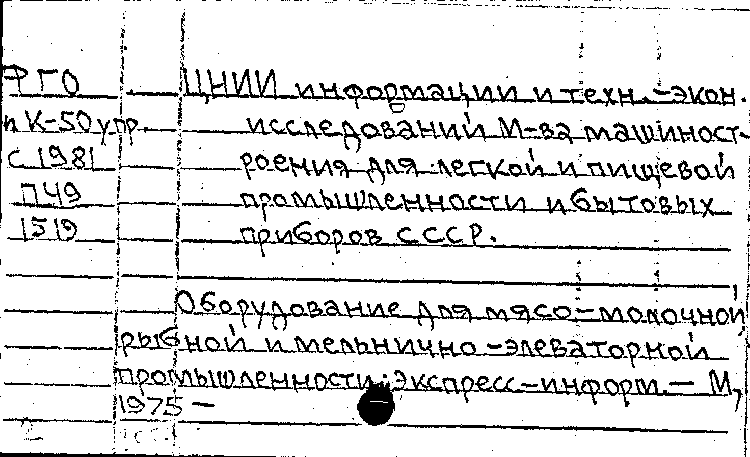 ФГО ЦНИИ информации и техн.-экон.
п К-50 упр. исследований М-ва машиност-
с 1981 роения для легкой и пищевой
П49 промышленности и бытовых
1519 приборов СССР.
Оборудование для мясо-молочной,
рыбной и мельнично-элеваторной
промышленности: Экспресс-информ.- М,
1975 -
2